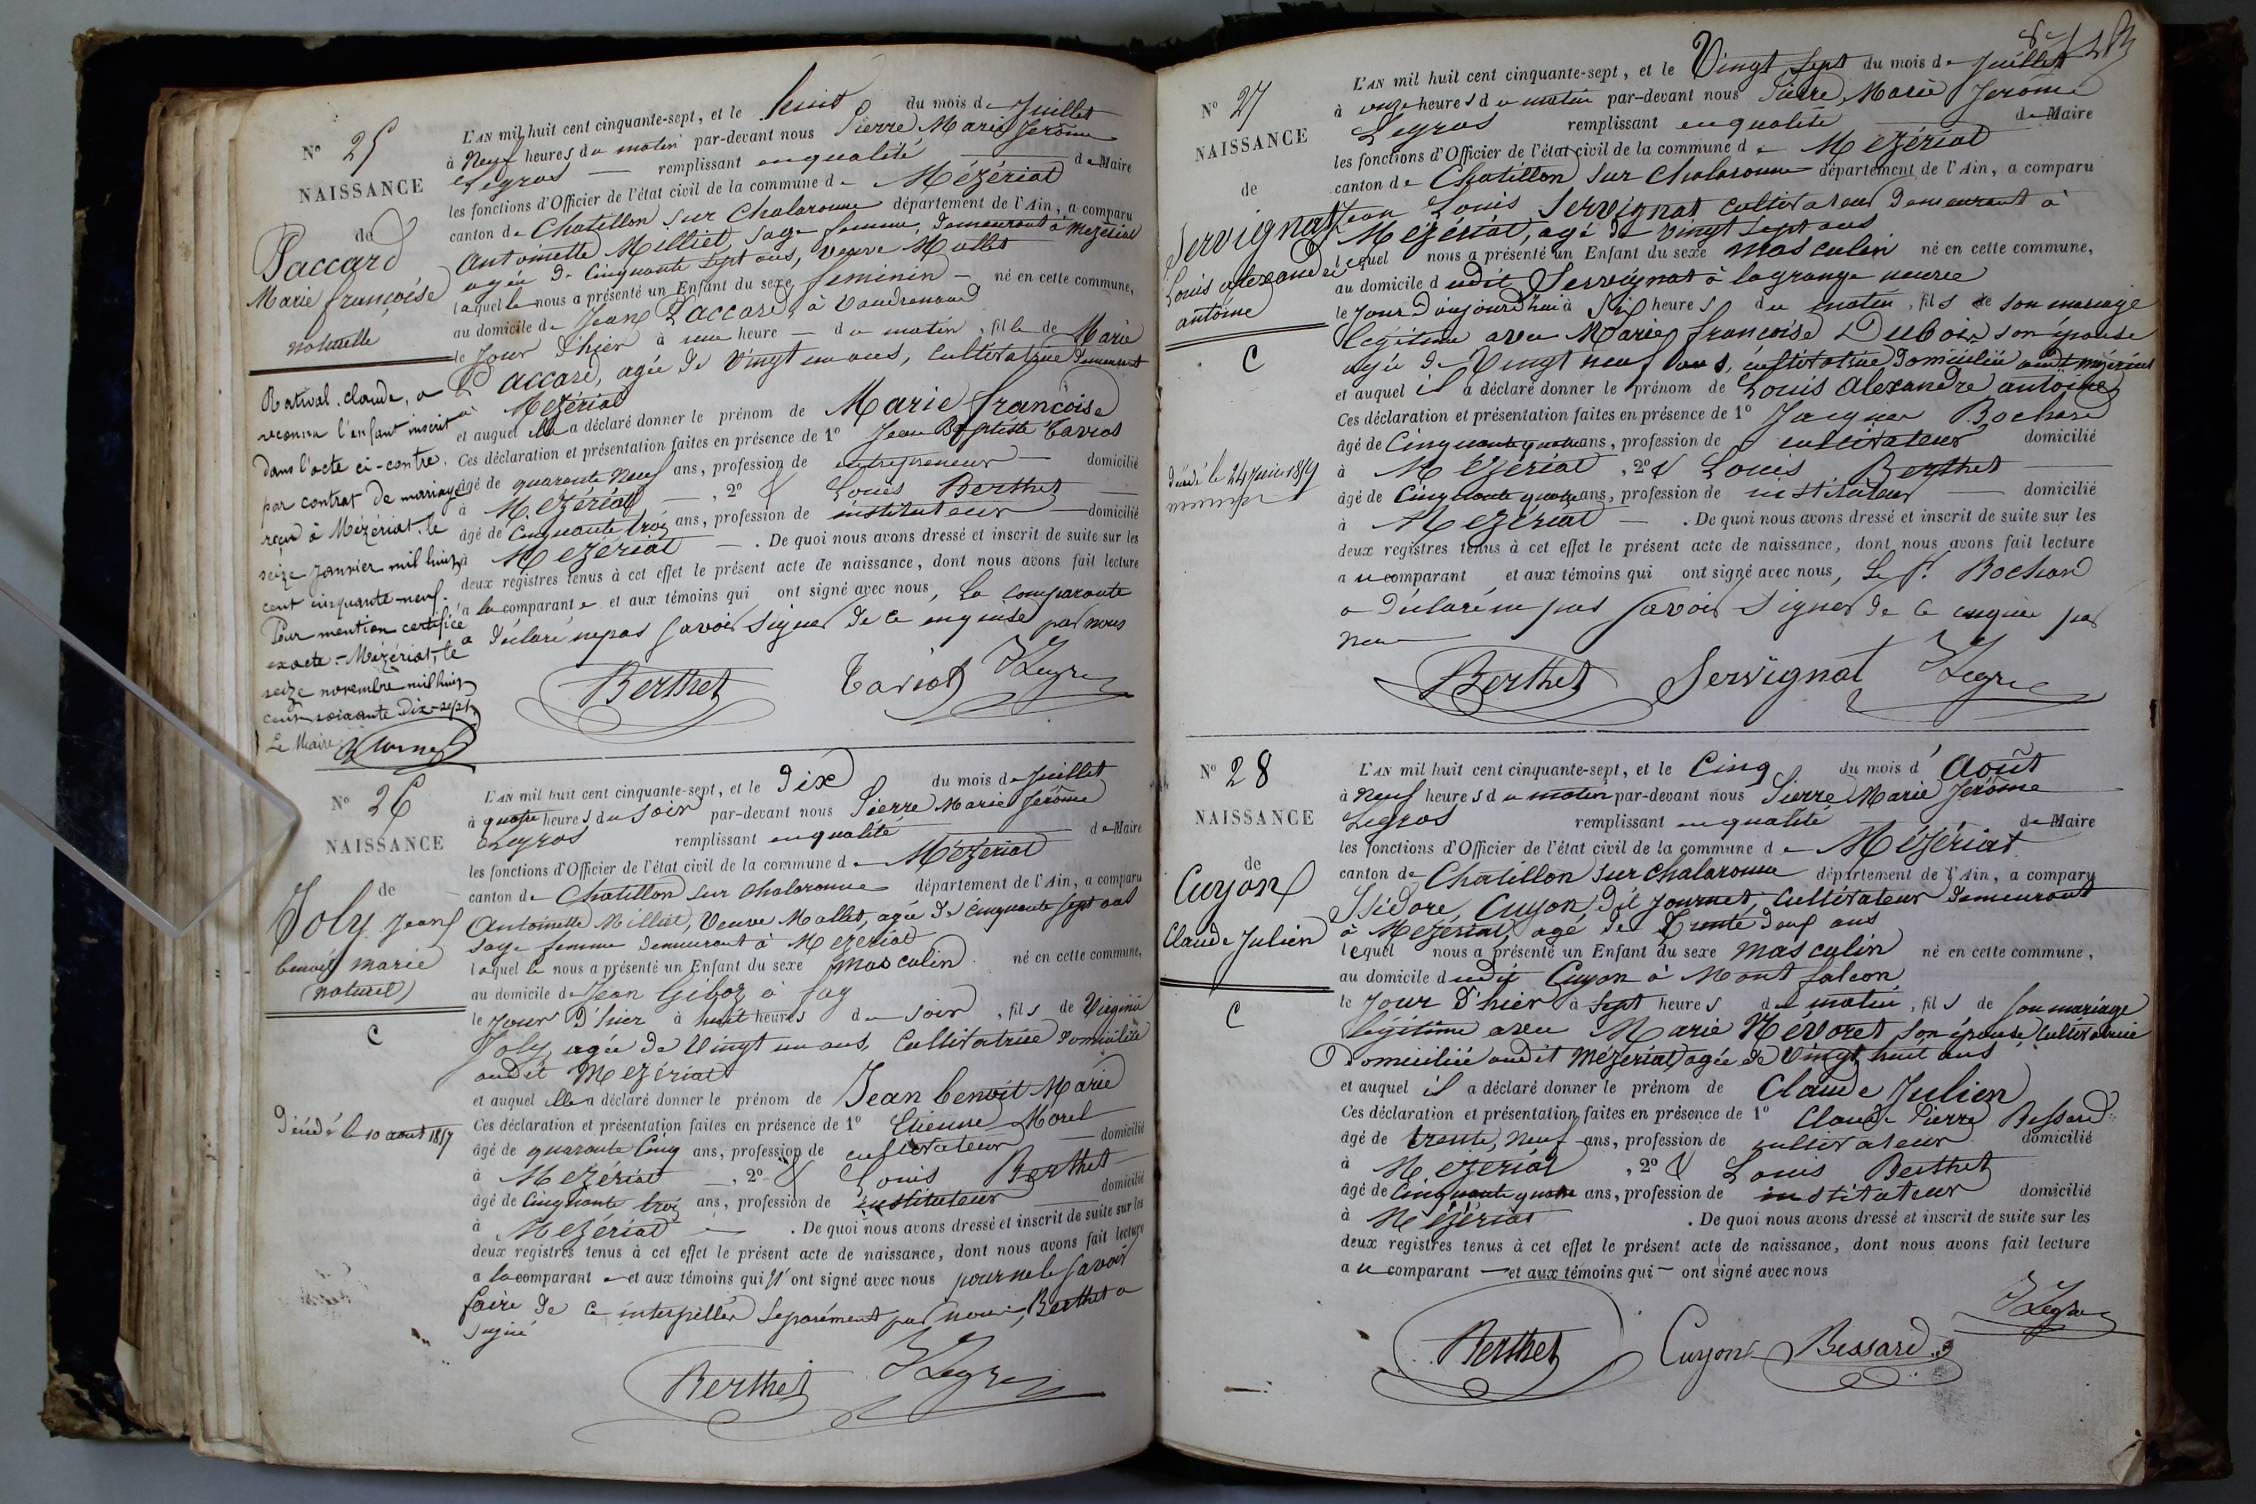 N° 25
NAISSANCE
de
Paccard
Marie françoise
naturelle
L'AN mil huit cent cinquante-sept, et le huit du mois de Juillet
à Neuf heures du matin par-devant nous Pierre Marie Jerôme
Legros remplissant en qualité de Maire
les fonctions d'Officier de l'état civil de la commune de Mézériat
canton de Chatillon sur Chalaronne département de l'Ain, a comparu
Antoinette Milliet, sage femme, demeurant à Mézériat
agée de Cinquante sept ans, veuve Mallet
laquelle nous a présenté un Enfant du sexe féminin né en cette commune,
au domicile de Jean Paccard, à Vaudrenand
le Jour d'hier à une heure du matin, fille de Marie
Paccard, agée de Vingt un ans, cultivatrice demeurant
à Mézériat
et auquel elle a déclaré donner le prénom de Marie françoise
Ces déclaration et présentation faites en présence de 1° Jean Baptiste Taviot
âgé de quarante Neuf ans, profession de entrepreneur domicilié
à Mézériat, 2° & Louis Berthet
âgé de Cinquante trois ans, profession de instituteur domicilié
à Mézériat. De quoi nous avons dressé et inscrit de suite sur les
deux registres tenus à cet effet le présent acte de naissance, dont nous avons fait lecture
a la comparante et aux témoins qui ont signé avec nous, La comparante
a déclaré ne pas savoir signer de ce enquise par nous
Berthet Taviot Legros
Rativat. claude, a
reconnu l'enfant inscrit
dans l'acte ci-contre.
par contrat de mariage
reçu à Mézériat-le
seize janvier mil huit
cent cinquante-neuf.
Pour mention certifiée
exacte.- Mézériat, le
seize novembre mil huit
cent soixante dix-sept
Le Maire
N° 26
NAISSANCE
de
Joly Jean
benoit marie
(naturel)
C
Décédé le 10 aout 1857
L'AN mil huit cent cinquante-sept, et le Dix du mois de Juillet
à quatre heures du soir par-devant nous Pierre Marie Jerôme
Legros remplissant en qualité de Maire
les fonctions d'Officier de l'état civil de la commune de Mézériat
canton de Chatillon sur Chalaronne département de l'Ain, a comparu
Antoinette Milliet, Veuve Mallet, agée de cinquante sept ans
sage femme demeurant à Mézériat
laquelle nous a présenté un Enfant du sexe masculin né en cette commune,
au domicile de Jean Giboz à fay
le Jour d'hier à huit heures du soir, fils de Virginie
Joly agée de Vingt un ans, Cultivatrice domiciliée
audit Mézériat
et auquel elle a déclaré donner le prénom de Jean benoit Marie
Ces déclaration et présentation faites en présence de 1° Etienne Morel
âgé de quarante Cinq ans, profession de cultivateur domicilié
à Mézériat, 2° & Louis Berthet
âgé de Cinquante trois ans, profession de instituteur domicilié
à Mézériat. De quoi nous avons dressé et inscrit de suite sur les
deux registres tenus à cet effet le présent acte de naissance, dont nous avons fait lecture
a la comparante et aux témoins qui n'ont signé avec nous pour ne le savoir
faire de ce interpellés séparément par nous, Berthet a
signé
Berthet Legros
N° 27
NAISSANCE
de
Servignat
Louis alexandre
antoine
C
Décédé le 24 juin 1859
L'AN mil huit cent cinquante-sept, et le Vingt sept du mois de Juillet
à onze heures du matin par-devant nous Pierre Marie Jerôme
Legros remplissant en qualité de Maire
les fonctions d'Officier de l'état civil de la commune de Mézériat
canton de Chatillon sur Chalaronne département de l'Ain, a comparu
Jean Louis Servignat cultivateur demeurant à
Mézériat, agé de vingt sept ans
lequel nous a présenté un Enfant du sexe masculin né en cette commune,
au domicile dudit Servignat à la grange neuve
le Jour d'aujourd'hui à Six heures du matin, fils de son mariage
légitime avec Marie françoise Dubois son épouse
agée de Vingt neuf ans, cultivatrice domiciliée audit mézériat
et auquel il a déclaré donner le prénom de Louis alexandre antoine
Ces déclaration et présentation faites en présence de 1° Jacques Bochard
âgé de Cinquante quatre ans, profession de cultivateur domicilié
à Mézériat, 2° & Louis Berthet
âgé de Cinquante quatre ans, profession de instituteur domicilié
à Mézériat. De quoi nous avons dressé et inscrit de suite sur les
deux registres tenus à cet effet le présent acte de naissance, dont nous avons fait lecture
au comparant et aux témoins qui ont signé avec nous, Le Sr. Bochard
a déclaré ne pas savoir signer de ce enquis par
nous
Berthet Servignat Legros
N° 28
NAISSANCE
de
Cuyon
Claude Julien
C
L'AN mil huit cent cinquante-sept, et le Cinq du mois d'Août
à Neuf heures du matin par-devant nous Pierre Marie Jérôme
Legros remplissant en qualité de Maire
les fonctions d'Officier de l'état civil de la commune de Mézériat
canton de Chatillon sur Chalaronne département de l'Ain, a comparu
Isidore, Cuyon, dit Journet, Cultivateur demeurant
à Mézériat, agé de Trente deux ans
lequel nous a présenté un Enfant du sexe masculin né en cette commune,
au domicile dudit Cuyon à Mont falcon
le Jour d'hier à sept heures du matin, fils de son mariage
légitime avec Marie Névoret son épouse Cultivatrice
domiciliée audit Mézériat agée de Vingt huit ans
et auquel il a déclaré donner le prénom de Claude Julien
Ces déclaration et présentation faites en présence de 1° Claude Pierre Bessard
âgé de trente, Neuf ans, profession de cultivateur domicilié
à Mézériat, 2° & Louis Berthet
âgé de Cinquante quatre ans, profession de instituteur domicilié
à Mézériat. De quoi nous avons dressé et inscrit de suite sur les
deux registres tenus à cet effet le présent acte de naissance, dont nous avons fait lecture
au comparant et aux témoins qui ont signé avec nous
Berthet Cuyon Bessard Legros